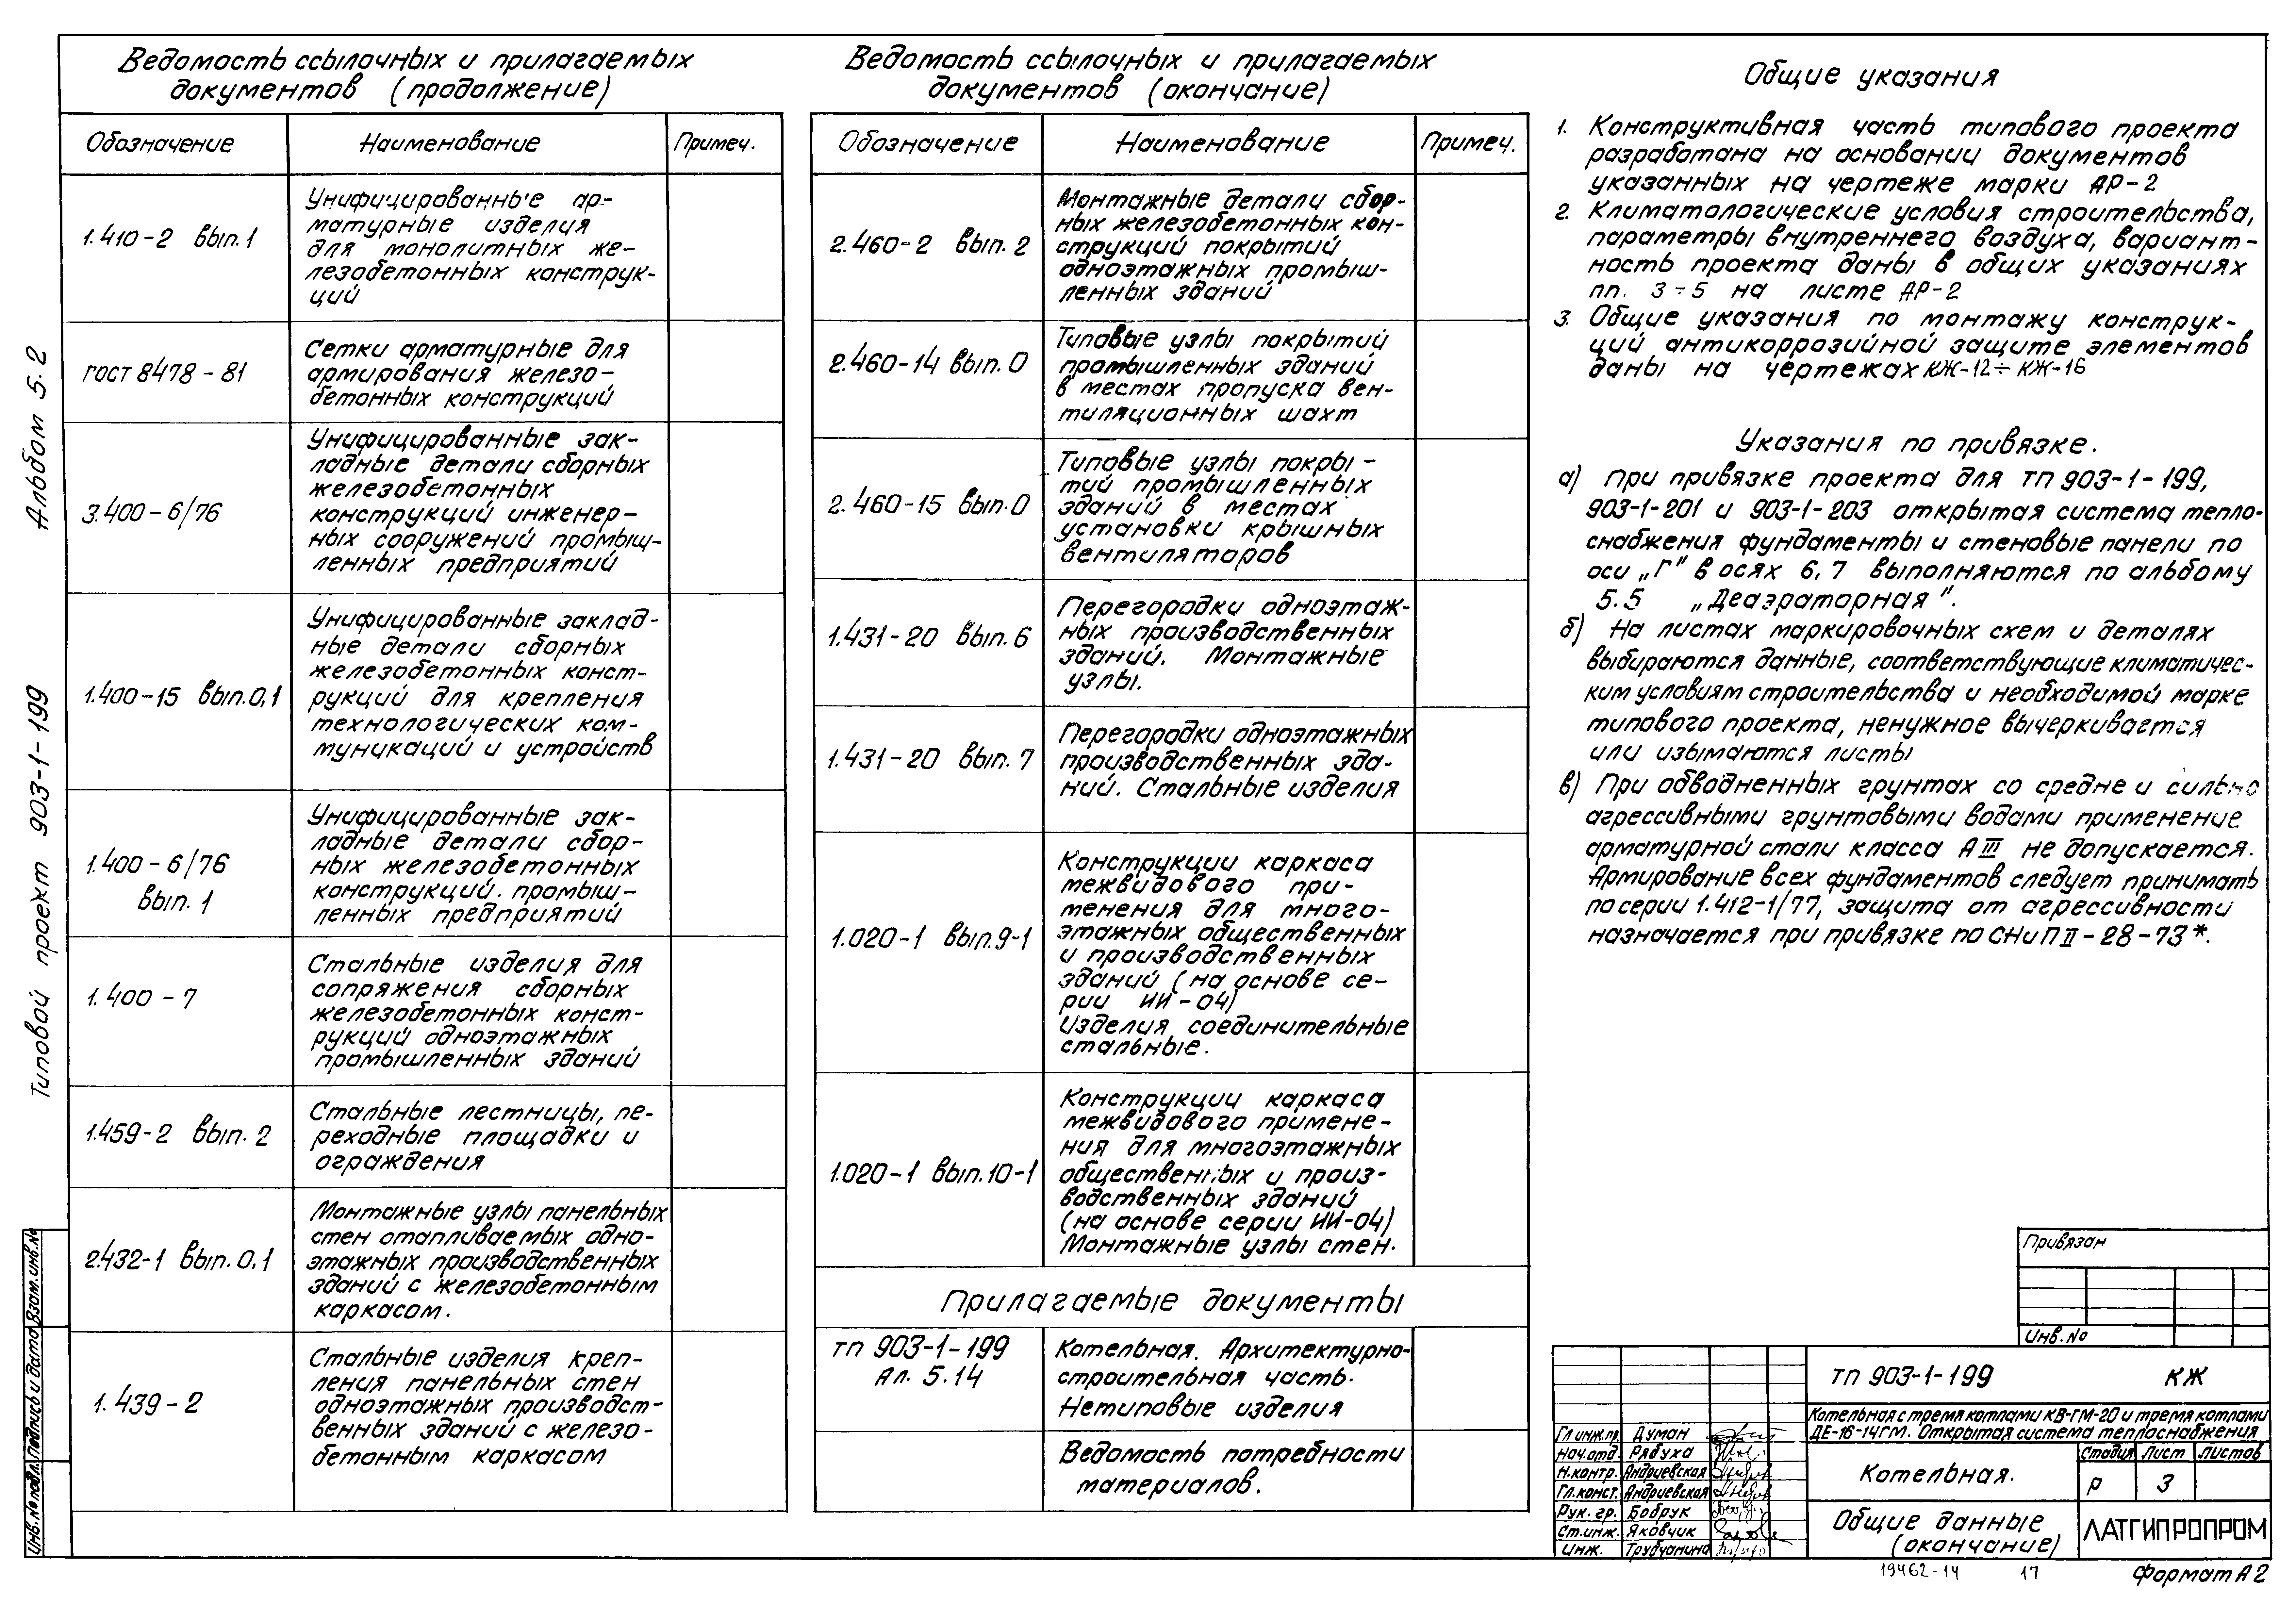 Ведомость ссылочных и прилагаемых
документов (продолжение)
Обозначение Наименование Примеч.
1.410-2 вып.1
Унифицированные ар-
матурные изделия
для монолитных же-
лезобетонных конструк-
ций
ГОСТ 8478-81
Сетки арматурные для
армирования железо-
бетонных конструкций
3.400-6/76
Унифицированные зак-
ладные детали сборных
железобетонных
конструкций инженер-
ных сооружений промыш-
ленных предприятий
1.400-15 вып.0,1
Унифицированные заклад-
ные детали сборных
железобетонных конст-
рукций для крепления
технологических ком-
муникаций и устройств
1.400-6/76
вып. 1
Унифицированные зак-
ладные детали сбор-
ных железобетонных
конструкций. промыш-
ленных предприятий
1.400-7
Стальные изделия для
сопряжения сборных
железобетонных конст-
рукций одноэтажных
промышленных зданий
1.459-2 вып. 2
Стальные лестницы, пе-
реходные площадки и
ограждения
2.432-1 вып.0,1
Монтажные узлы панельных
стен отапливаемых одно-
этажных производственных
зданий с железобетонным
каркасом.
1.439-2
Стальные изделия креп-
ления панельных стен
одноэтажных производст-
венных зданий с железо-
бетонным каркасом
Ведомость ссылочных и прилагаемых
документов (окончание)
Обозначение Наименование Примеч.
2.460-2 вып. 2
Монтажные детали сбор-
ных железобетонных кон-
струкций покрытий
одноэтажных промыш-
ленных зданий
2.460-14 вып. 0
Типовые узлы покрытий
промышленных зданий
в местах пропуска вен-
тиляционных шахт
2.460-15 вып.0
Типовые узлы покры-
тий промышленных
зданий в местах
установки крышных
вентиляторов
1.431-20 вып. 6
Перегородки одноэтаж-
ных производственных
зданий. Монтажные
узлы.
1.431-20 вып. 7
Перегородки одноэтажных
производственных зда-
ний. Стальные изделия
1.020-1 вып.9-1
Конструкции каркаса
межвидового при-
менения для много-
этажных общественных
и производственных
зданий (на основе се-
рии ИИ-04)
Изделия соединительные
стальные.
1.020-1 вып.10-1
Конструкции каркаса
межвидового примене-
ния для многоэтажных
общественных и произ-
водственных зданий
(на основе серии ИИ-04)
Монтажные узлы стен.
Прилагаемые документы
ТП 903-1-199
Ал. 5.14
Котельная. Архитектурно-
строительная часть.
Нетиповые изделия
Ведомость потребности
материалов.
Общие указания
1. Конструктивная часть типового проекта
разработана на основании документов
указанных на чертеже марки АР-2
2. Климатологические условия строительства,
параметры внутреннего воздуха, вариант-
ность проекта даны в общих указаниях
пп. 3÷5 на листе АР-2
3. Общие указания по монтажу конструк-
ций антикоррозийной защите элементов
даны на чертежах КЖ-12÷КЖ-16
Указания по привязке.
а) При привязке проекта для ТП 903-1-199,
903-1-201 и 903-1-203 открытая система тепло-
снабжения фундаменты и стеновые панели по
оси „Г" в осях 6,7 выполняются по альбому
5.5 „Деаэраторная".
б) На листах маркировочных схем и деталях
выбираются данные, соответствующие климатичес-
ким условиям строительства и необходимой марке
типового проекта, ненужное вычеркивается
или изымаются листы
в) При обводненных грунтах со средне и сильно
агрессивными грунтовыми водами применение
арматурной стали класса АIII не допускается.
Армирование всех фундаментов следует принимать
по серии 1.412-1/77, защита от агрессивности
назначается при привязке по СНиП II-28-73*.
Привязан
Инв. №
ТП 903-1-199 КЖ
Котельная с тремя котлами КВ-ГМ-20 и тремя котлами
ДЕ-16-14ГМ. Открытая система теплоснабжения
Гл.инж.пр. Думан
Нач.отд. Рябуха
Н.контр. Андриевская
Гл.конст. Андриевская
Рук. гр. Бобрук
Ст.инж. Яковчик
Инж. Трубчанина
Котельная.
Стадия Лист Листов
Р 3
Общие данные
(окончание)
ЛАТГИПРОПРОМ
19462-14 17 Формат А2
Типовой проект 903-1-199 Альбом 5.2
Инв.№ подл. Подпись и дата Взам.инв.№